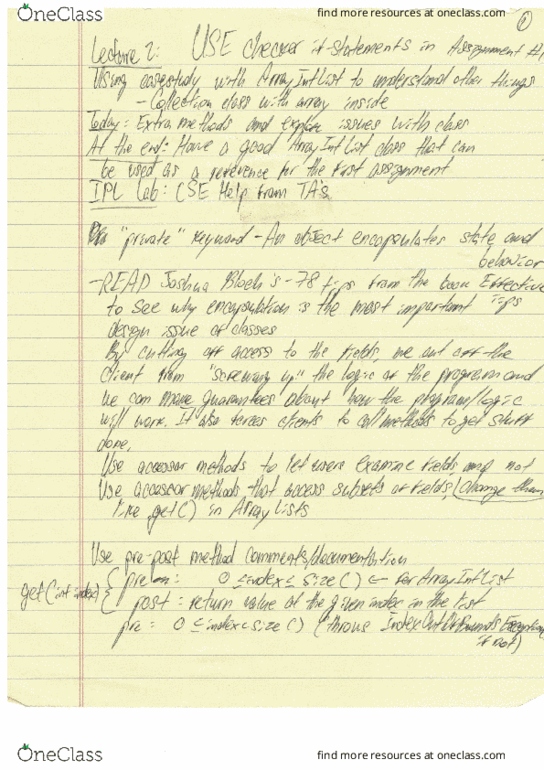 OneClass
find more resources at oneclass.com
1
Lecture 2: USE checker if-statements in Assignment #1
Using casestudy with ArrayIntList to understand other things
- Collection class with array inside
Today: Extra methods and explore issues with class
At the end: Have a good ArrayIntList class that can
be used as a reference for the first assignment
IPL Lab: CSE Help from TA's
"private" keyword - An object encapsulates state and
behavior
- READ Joshua Bloch's - 78 tips from the book Effective
to see why encapsulation is the most important tips
design issue of classes
By cutting off access to the fields, we cut off the
client from "screwing up" the logic of the program and
we can make guarantees about how the program/logic
will work. It also forces clients to call methods to get stuff
done.
Use accessor methods to let users examine fields, and not
Use accessor methods that access subsets of fields, (change them
like get() in ArrayLists
Use pre-post method comments/documentation
get(int index) { 0 ≤ index < size() ← for ArrayIntList
post: return value of the given index in the list
pre: 0 ≤ index < size() (throws IndexOutOfBoundsException
if not)
OneClass
find more resources at oneclass.com